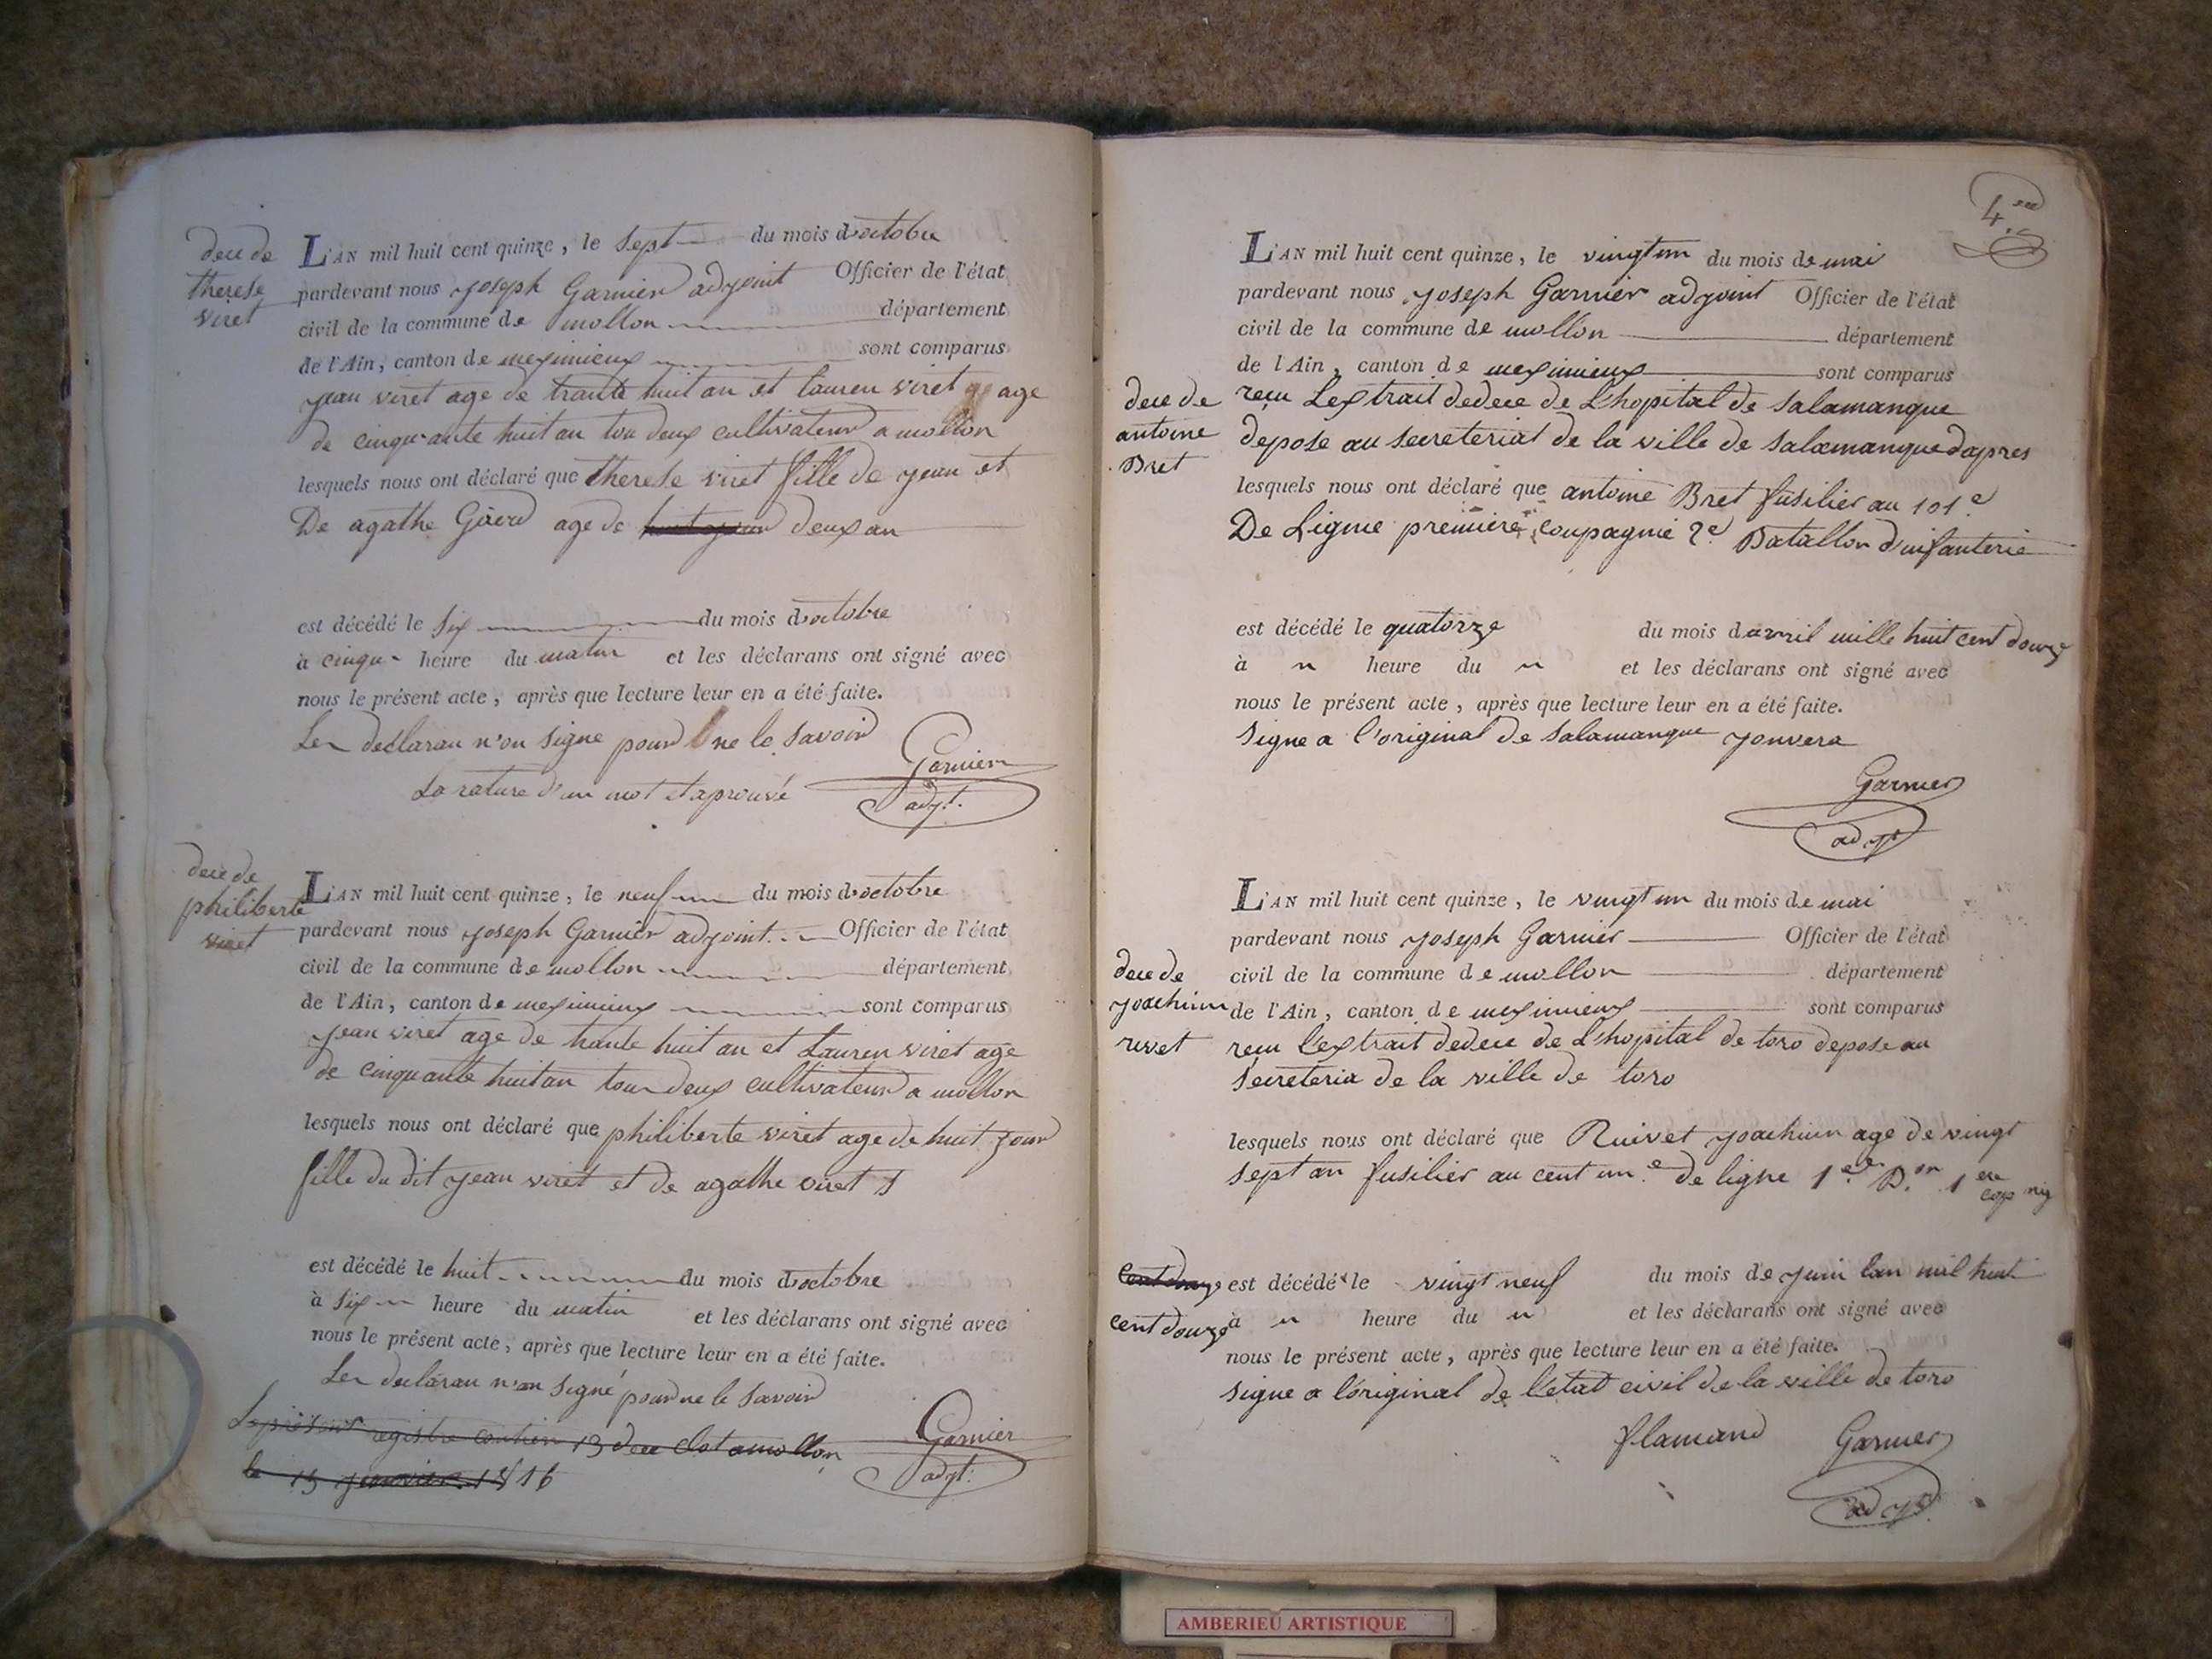 dece de
therese
viret
L'AN mil huit cent quinze, le sept du mois doctobre
pardevant nous joseph Garnier adjoint Officier de l'état
civil de la commune de mollon département
de l'Ain, canton de meximieux sont comparus
jean viret age de trante huit an et lauren viret age
de cinquante huit an tou deux cultivateur a mollon
lesquels nous ont déclaré que therese viret fille de jean et
De agathe age de deux an
est décédé le six du mois doctobre
à cinque heure du matin et les déclarans ont signé avec
nous le présent acte, après que lecture leur en a été faite.
Les declaran n'on signe pour ne le savoir
La rature d'un mot et aprouvé
Garnier
adjt.
dece de
philiberte
viret
L'AN mil huit cent quinze, le neuf du mois doctobre
pardevant nous joseph Garnier adjoint Officier de l'état
civil de la commune de mollon département
de l'Ain, canton de meximieux sont comparus
jean viret age de trante huit an et Lauren viret age
de cinquante huit an tou deux cultivateur a mollon
lesquels nous ont déclaré que philiberte viret age de huit jour
fille du dit jean viret et de agathe viret
est décédé le huit du mois doctobre
à six heure du matin et les déclarans ont signé avec
nous le présent acte, après que lecture leur en a été faite.
Les declaran n'on signé pour ne le savoir
Le présent registre contien 13 dece clot a mollon
le 13 janvier 1816
Garnier
adjt.
L'AN mil huit cent quinze, le vingt un du mois de mai
pardevant nous joseph Garnier adjoint Officier de l'état
civil de la commune de mollon département
de l'Ain, canton de meximieux sont comparus
dece de
antoine
Bret
reçu Lextrait dedece de L'hopital de Salamanque
depose au secreteriat de la ville de Salamanque dapres
lesquels nous ont déclaré que antoine Bret fusilier au 101.e
De Ligne premiere coupagnie 2.e Batallon d'infanterie
est décédé le quatorze du mois davril mille huit cent douze
à heure du et les déclarans ont signé avec
nous le présent acte, après que lecture leur en a été faite.
Signe a l'original de Salamanque jonvera
Garnier
adjt
L'AN mil huit cent quinze, le vingt un du mois de mai
pardevant nous joseph Garnier Officier de l'état
civil de la commune de mollon département
de l'Ain, canton de meximieux sont comparus
dece de
joachim
rivet
reçu l'extrait dedece de L'hopital de toro depose au
Secreteria de la ville de toro
lesquels nous ont déclaré que Ruivet joachim age de vingt
sept an fusilier au cent un.e de ligne 1.er B.on 1ere
est décédé le vingt neuf du mois de juin lan mil huit
cent douze
à heure du et les déclarans ont signé avec
nous le présent acte, après que lecture leur en a été faite.
signe a l'original de l'etat civil de la ville de toro
flamand Garnier
adjt
AMBERIEU ARTISTIQUE